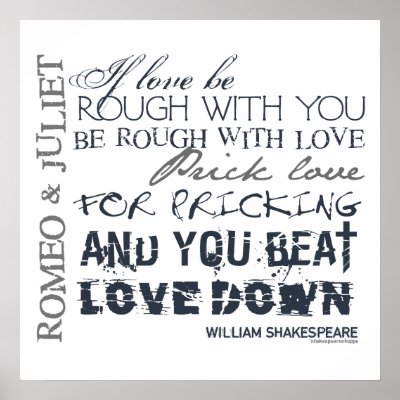 ROMEO & JULIET
If love be
ROUGH WITH YOU
BE ROUGH WITH LOVE
Prick love
FOR PRICKING
AND YOU BEAT
LOVE DOWN
WILLIAM SHAKESPEARE
*shakespeareshoppe